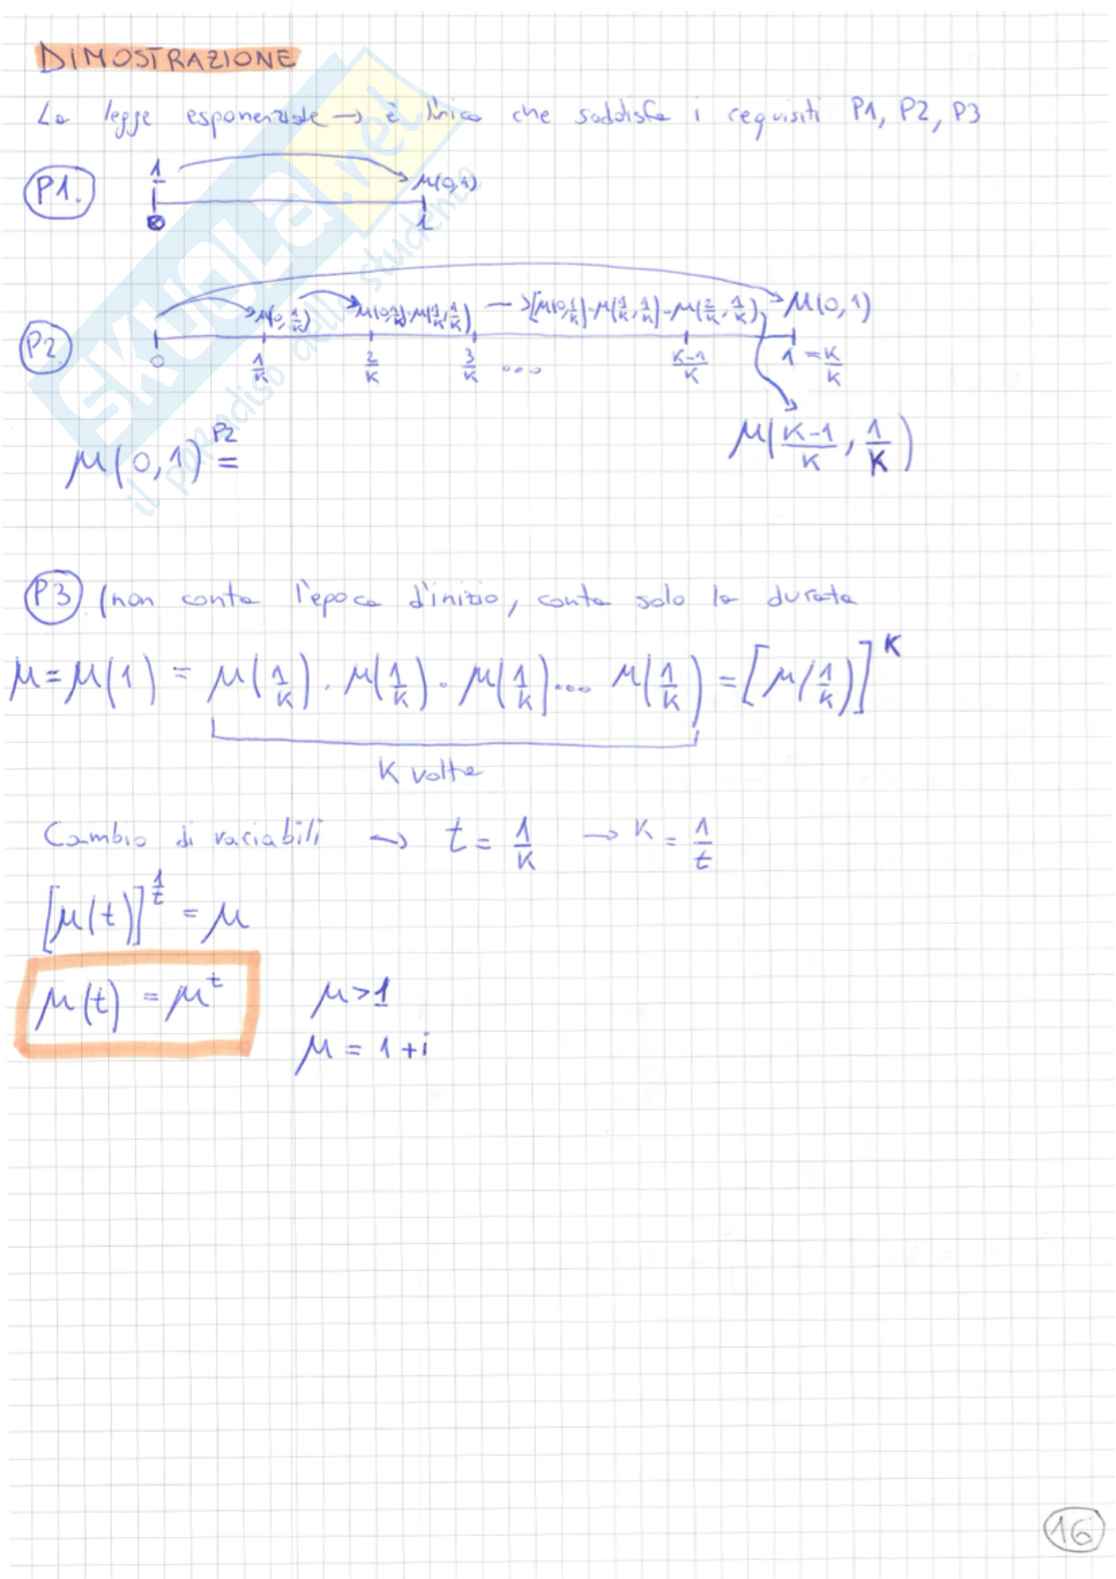 DIMOSTRAZIONE
La legge esponenziale → è l'unica che soddisfa i requisiti P1, P2, P3
P1. 1 μ(0,1)
0 1
P2 μ(0,1/K) μ(0,1/K)·μ(1/K,1/K) → [μ(0,1/K)·μ(1/K,1/K)·μ(2/K,1/K) μ(0,1)
0 1/K 2/K 3/K ... K-1/K 1 = K/K
μ(0,1) P2 = μ(K-1/K, 1/K)
P3 (non conta l'epoca d'inizio, conta solo la durata
μ = μ(1) = μ(1/K) · μ(1/K) · μ(1/K) ... μ(1/K) = [μ(1/K)]^K
K volte
Cambio di variabili → t = 1/K → K = 1/t
[μ(t)]^1/t = μ
μ(t) = μ^t μ>1
μ = 1+i
16
SKUOLA.net
il paradiso dello studente